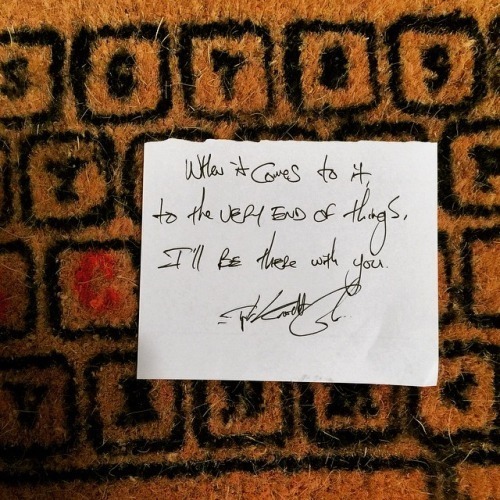 6 7 8 9
When it comes to it,
to the VERY END OF things,
I'll BE there with you.